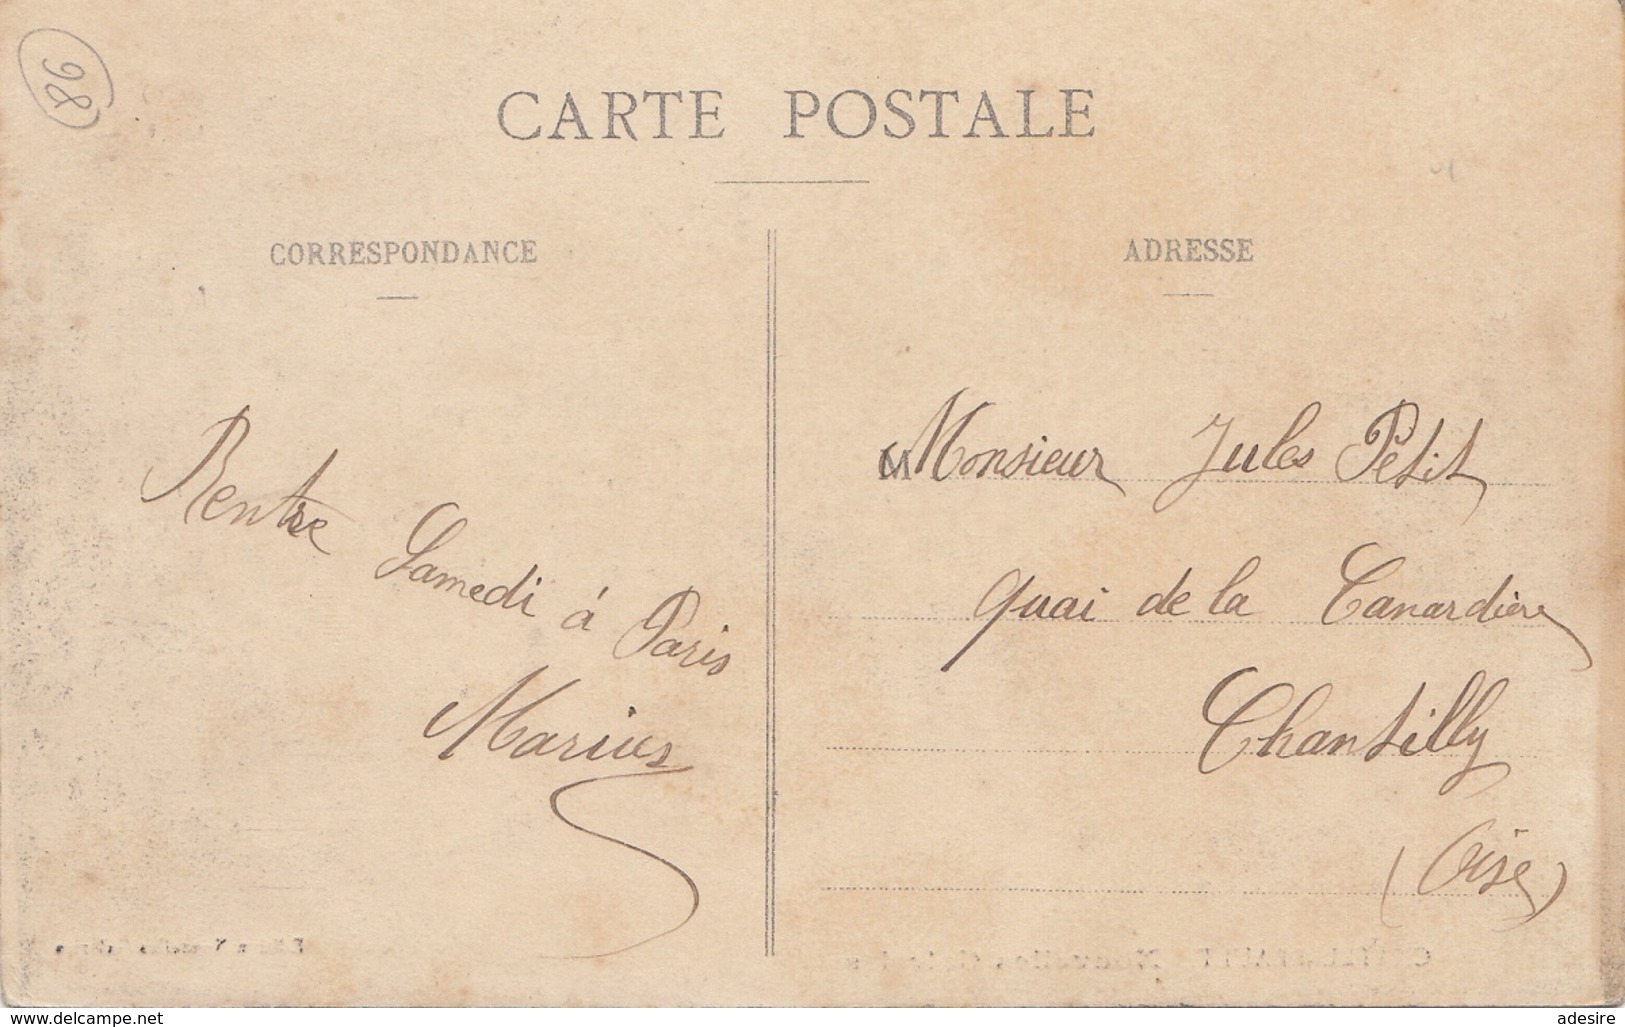 98
CARTE POSTALE
CORRESPONDANCE
ADRESSE
Rentre Samedi à Paris
Marius
M Monsieur Jules Petit
quai de la Canardière
Chantilly
(Oise)
www.delcampe.net
adesire